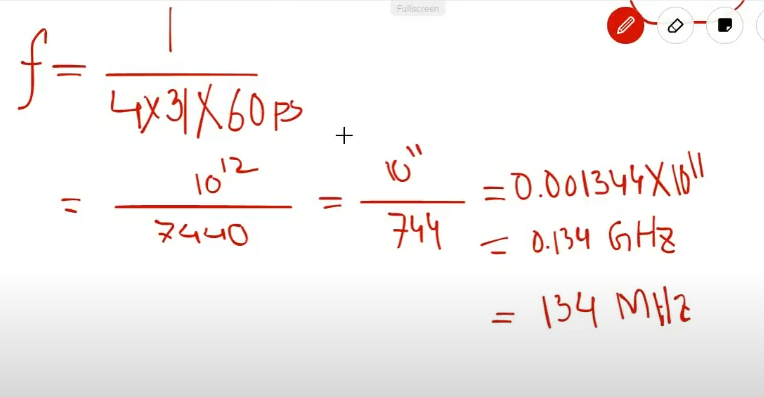 Fullscreen
f = 1 / 4×31×60ps
= 10^12 / 7440 = 10^11 / 744 = 0.001344×10^11
= 0.134 GHz
= 134 MHz